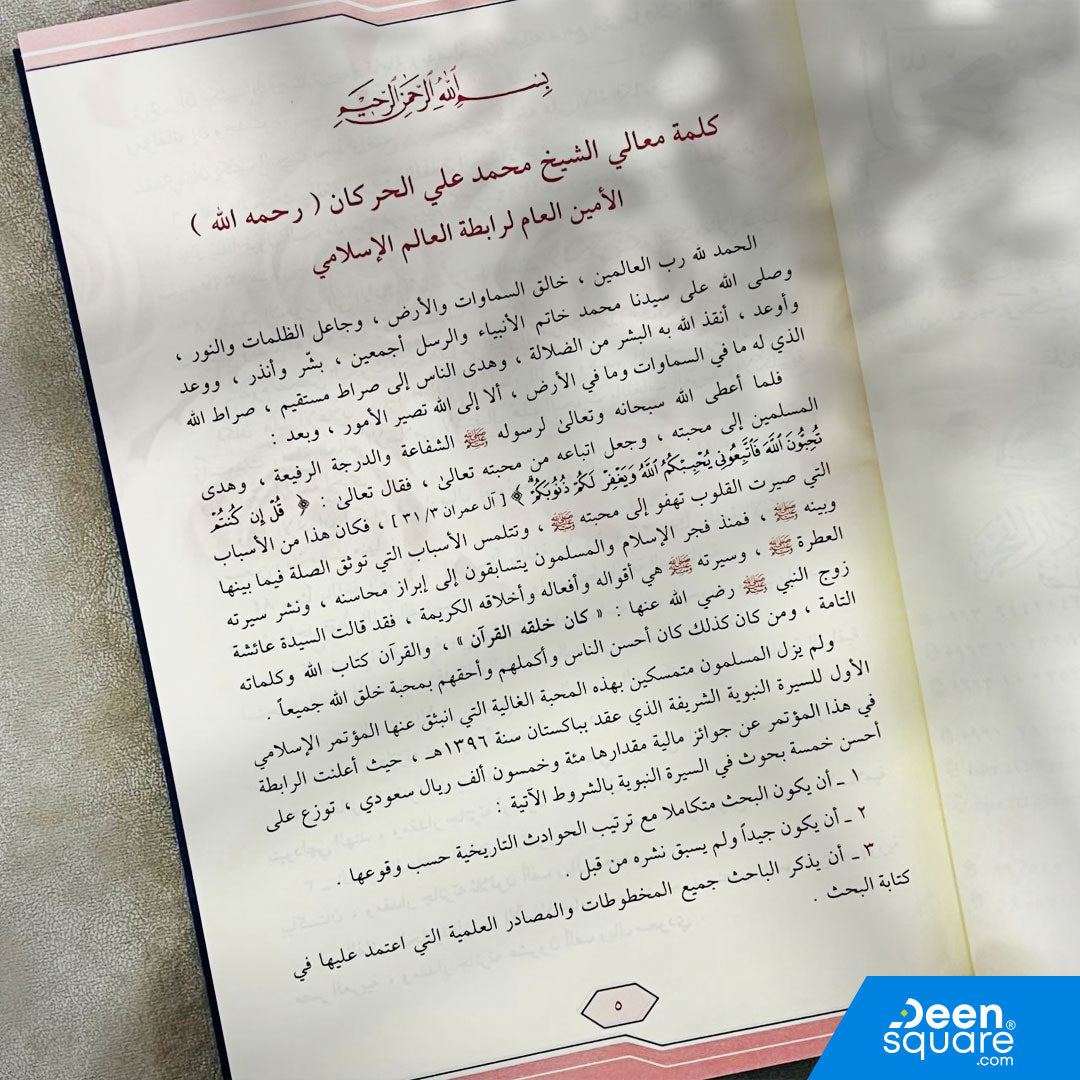 بسم الله الرحمن الرحيم
كلمة معالي الشيخ محمد علي الحركان ( رحمه الله )
الأمين العام لرابطة العالم الإسلامي
الحمد لله رب العالمين ، خالق السماوات والأرض ، وجاعل الظلمات والنور ،
وصلى الله على سيدنا محمد خاتم الأنبياء والرسل أجمعين ، بشّر وأنذر ، ووعد
وأوعد ، أنقذ الله به البشر من الضلالة ، وهدى الناس إلى صراط مستقيم ، صراط الله
الذي له ما في السماوات وما في الأرض ، ألا إلى الله تصير الأمور ، وبعد :
فلما أعطى الله سبحانه وتعالىٰ لرسوله ﷺ الشفاعة والدرجة الرفيعة ، وهدى
المسلمين إلى محبته ، وجعل اتباعه من محبته تعالىٰ ، فقال تعالىٰ : ﴿ قُلْ إِن كُنتُمْ
تُحِبُّونَ اللَّهَ فَاتَّبِعُونِي يُحْبِبْكُمُ اللَّهُ وَيَغْفِرْ لَكُمْ ذُنُوبَكُمْ ﴾ [ آل عمران ٣/ ٣١ ] ، فكان هذا من الأسباب
التي صيرت القلوب تهفو إلى محبته ﷺ ، وتتلمس الأسباب التي توثق الصلة فيما بينها
وبينه ﷺ ، فمنذ فجر الإسلام والمسلمون يتسابقون إلى إبراز محاسنه ، ونشر سيرته
العطرة ﷺ ، وسيرته ﷺ هي أقواله وأفعاله وأخلاقه الكريمة ، فقد قالت السيدة عائشة
زوج النبي ﷺ رضي الله عنها : « كان خلقه القرآن » ، والقرآن كتاب الله وكلماته
التامة ، ومن كان كذلك كان أحسن الناس وأكملهم وأحقهم بمحبة خلق الله جميعاً .
ولم يزل المسلمون متمسكين بهذه المحبة الغالية التي انبثق عنها المؤتمر الإسلامي
الأول للسيرة النبوية الشريفة الذي عقد بباكستان سنة ١٣٩٦هـ ، حيث أعلنت الرابطة
في هذا المؤتمر عن جوائز مالية مقدارها مئة وخمسون ألف ريال سعودي ، توزع على
أحسن خمسة بحوث في السيرة النبوية بالشروط الآتية :
١ ـ أن يكون البحث متكاملا مع ترتيب الحوادث التاريخية حسب وقوعها .
٢ ـ أن يكون جيداً ولم يسبق نشره من قبل .
٣ ـ أن يذكر الباحث جميع المخطوطات والمصادر العلمية التي اعتمد عليها في
كتابة البحث .
٥
Deen
square®
.com